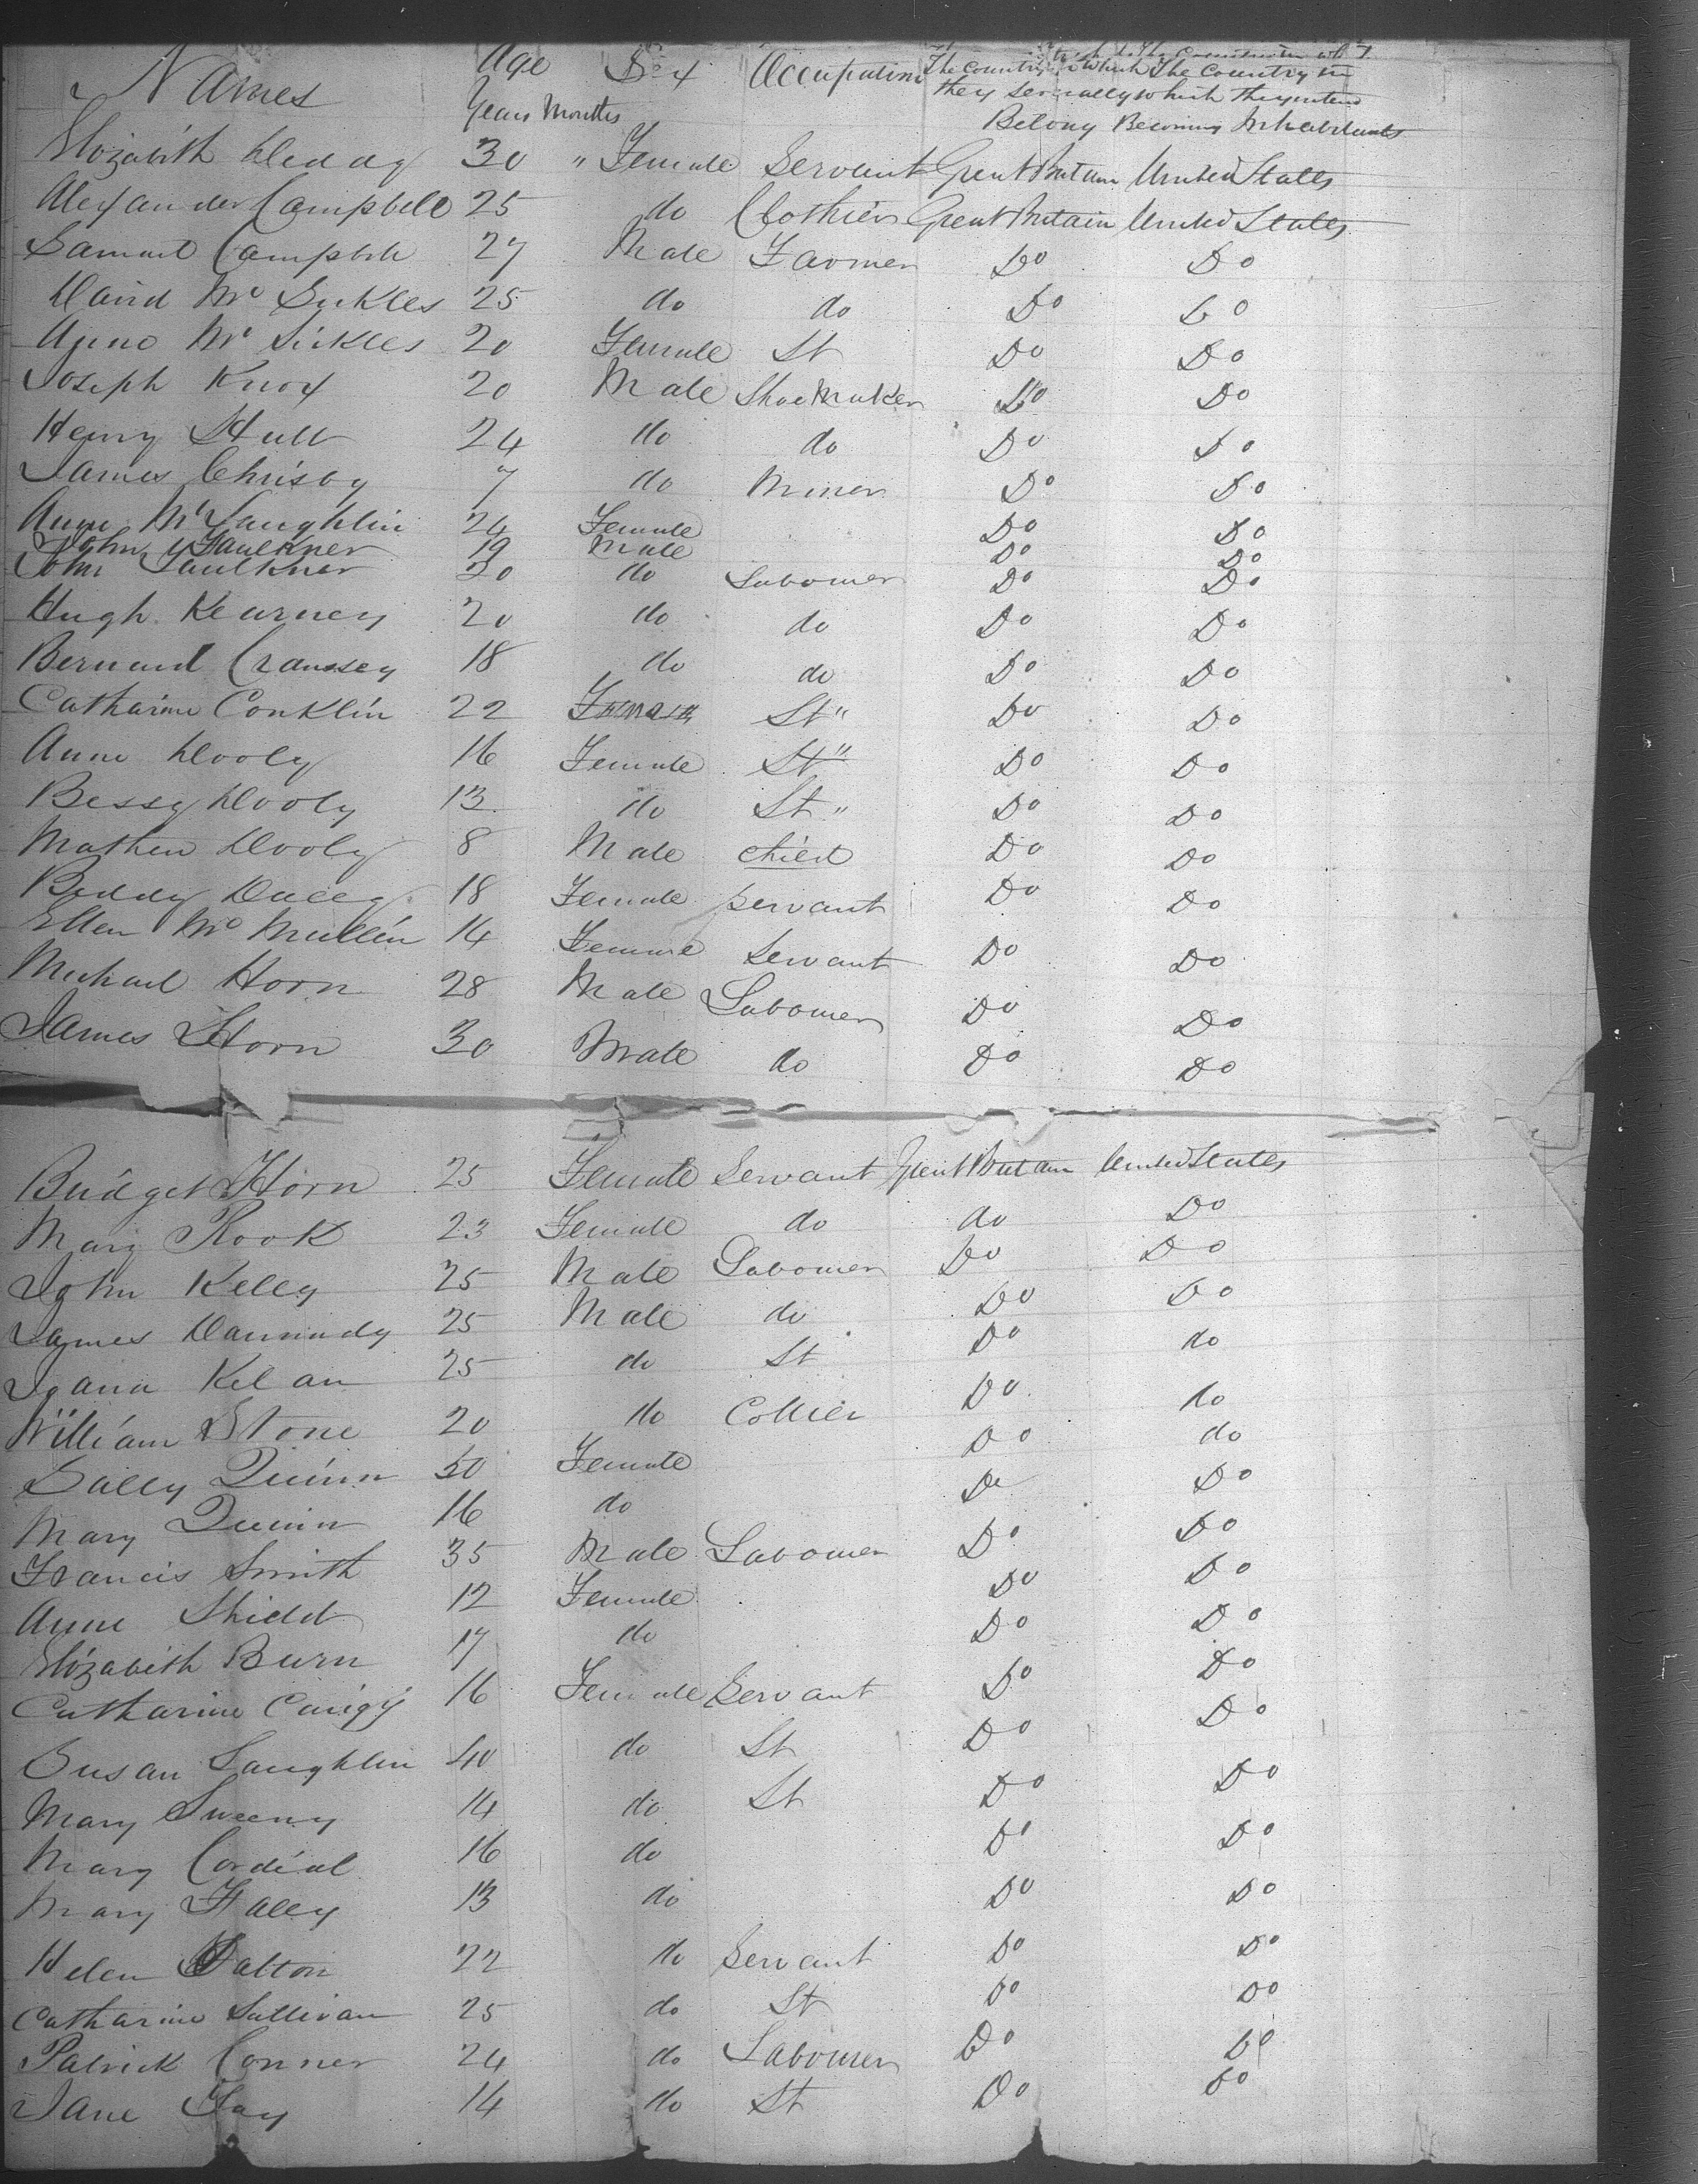 Names Age Sex Occupation The Country to which The Country in
they severally which they intend
Years Months Belong Becoming Inhabitants
Elizabeth 30 " Female Servant Great Britain United States
Alexander Campbell 25 do Clothier Great Britain United States
Samuel Campbell 27 Male Farmer Do Do
David Mc Sickles 25 do do Do Do
Anne Mc Sickles 20 Female St Do Do
Joseph Knox 20 Male Shoe Maker Do Do
Henry Hull 24 do do Do Do
James Chrisby 7 do Minor Do Do
Anne McLaughlin 24 Female Do Do
John Faulkner 19 Male Do Do
John Faulkner 30 do Labourer Do Do
Hugh Kearney 20 do do Do Do
Bernard Craussey 18 do do Do Do
Catharine Conklin 22 Female St " Do Do
Anne Dooly 16 Female St " Do Do
Bessy Dooly 13 do St " Do Do
Mathew Dooly 8 Male Child Do Do
Biddy 18 Female Servant Do Do
Ellen Mc Mullin 14 Female Servant Do Do
Michael Horn 28 Male Labourer Do Do
James Horn 30 Male do Do Do
Bridget Horn 25 Female Servant Great Britain United States
Mary Rook 23 Female do do Do
John Kelly 25 Male Labourer Do Do
James 25 Male do Do Do
Kelan 25 do St Do do
William Stone 20 do Collier Do do
Sally Quinn 50 Female Do do
Mary Quinn 16 do Do Do
Francis Smith 35 Male Labourer Do Do
Anne Shield 12 Female Do Do
Elizabeth Burn 17 do Do Do
Catharine 16 Female Servant Do Do
Susan Laughlin 40 do St Do Do
Mary Sweeny 14 do St Do Do
Mary Cordial 16 do Do Do
Mary Haley 13 do Do Do
Helen Dalton 22 do Servant Do Do
Catharine Sullivan 25 do St Do Do
Patrick Conner 24 do Labourer Do Do
Jane Fay 14 do St Do Do